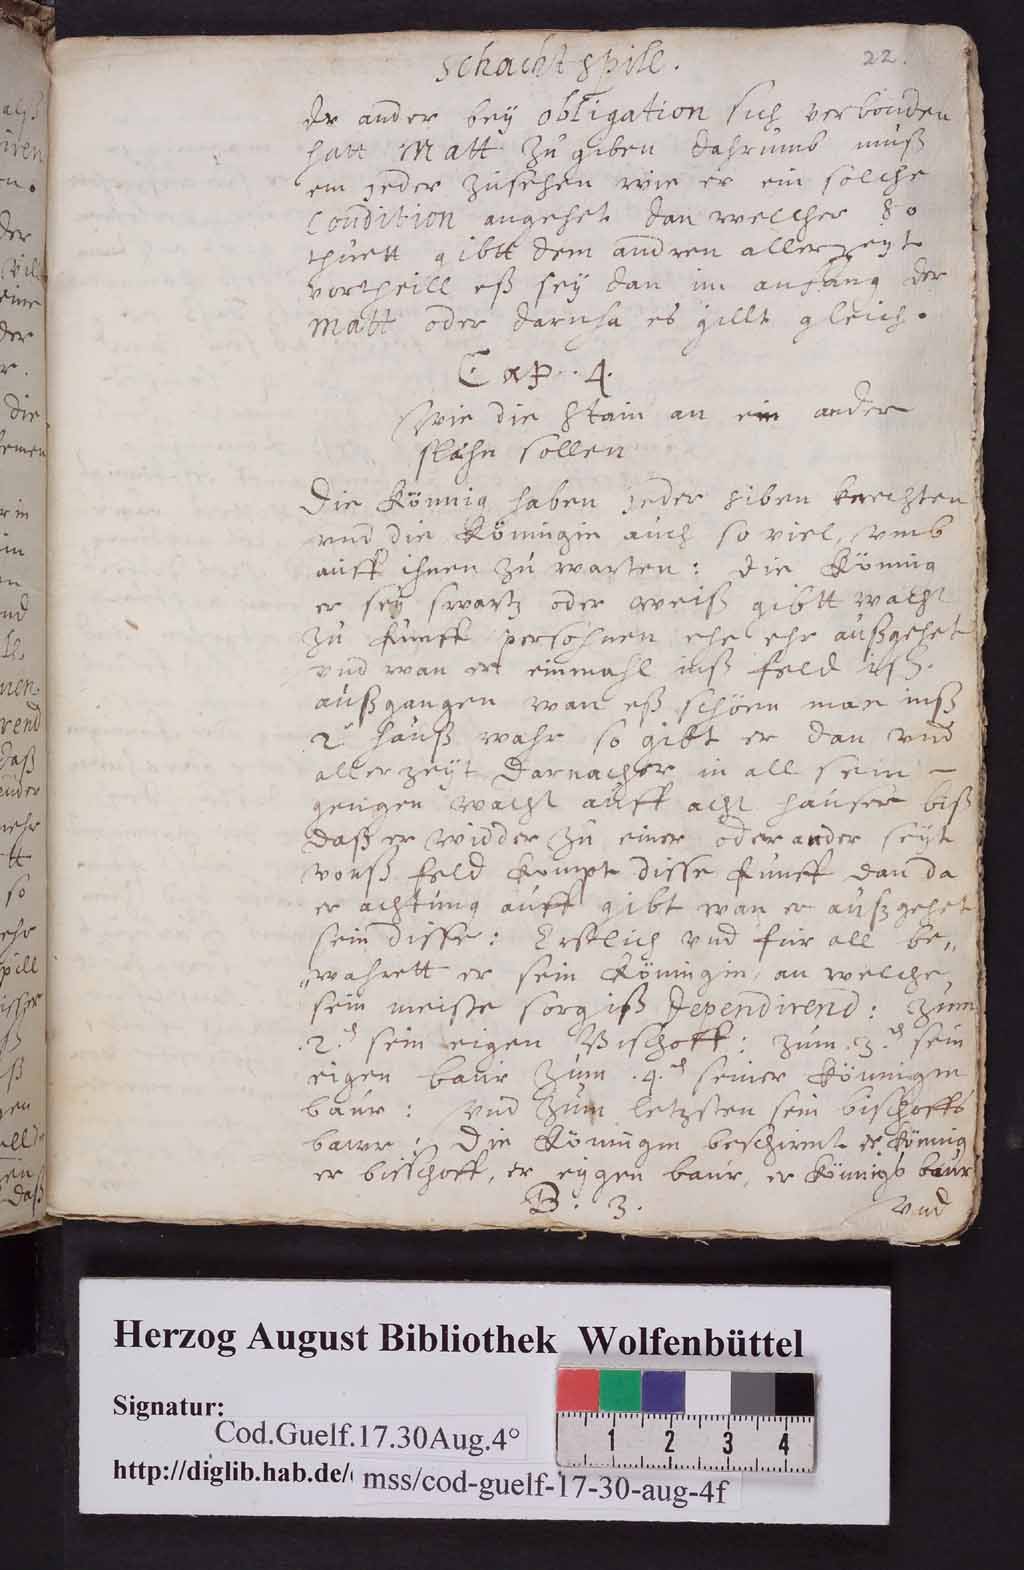 schacht spile. 22.
dr ander bey obligation sich verbonden
hatt Matt zu giben dahrumb muß
ein jeder zusehen wie er ein solche
Condition angehet dan welcher so
thuett gibtt dem andren allerzeyt
vortheill eß sey dan im anfang der
Matt oder darnha es gillt gleich.
Cap. 4.
Wie die Stain an ein ander
stehn sollen
Die Könnig haben jeder siben knechten
vnd die Könnigin auch so viel, vmb
auff ihnen zu warten: die Könnig
er sey swartz oder weiß gibtt wacht
zu funff persohnen ehe ehr außgehet
vnd wan er einmahl inß feld iß
außgangen wan eß schoen man inß
2 hauß wahr so gibt er dan vnd
allerzeyt darnacher in all sein
gengen wacht auff acht hauser biß
daß er widder zu einer oder ander seyt
vonß feld kompt disse funff dan da
er achtung auff gibt wan er außgehet
sein disse: Erstlich vnd fur all be„
„wahrett er sein Könnigin, an welche
sein meiste sorg iß dependirend: zum
.2. sein eigen Bischoff: zum .3. sein
eigen baur zum .4. seiner Könnigin
baur: vnd zum letzsten sein bischoffs
bawr: Die Könnigin beschirmt er Könnig
er bisschoff, er eygen baur, er Könnigs baur
B. 3. vnd
Herzog August Bibliothek Wolfenbüttel
Signatur:
Cod.Guelf.17.30Aug.4°
http://diglib.hab.de/
mss/cod-guelf-17-30-aug-4f
1 2 3 4